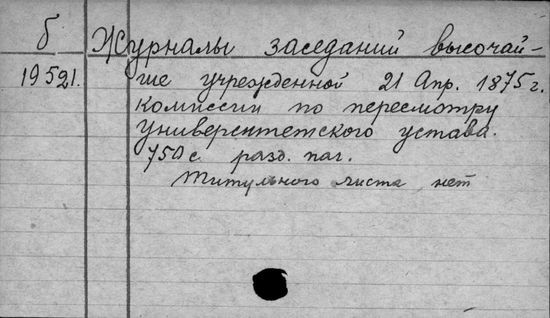 б Журналы заседаний высочай-
19521. ше учрежденной 21 Апр. 1875 г.
комиссии по пересмотру
университетского устава.
750 с разд. паг.
Титульного листа нет